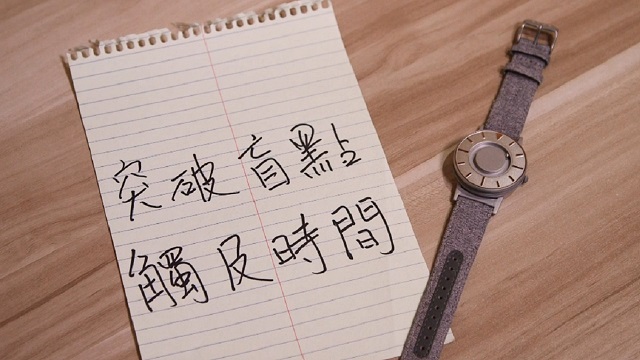 突破盲點
觸及時間